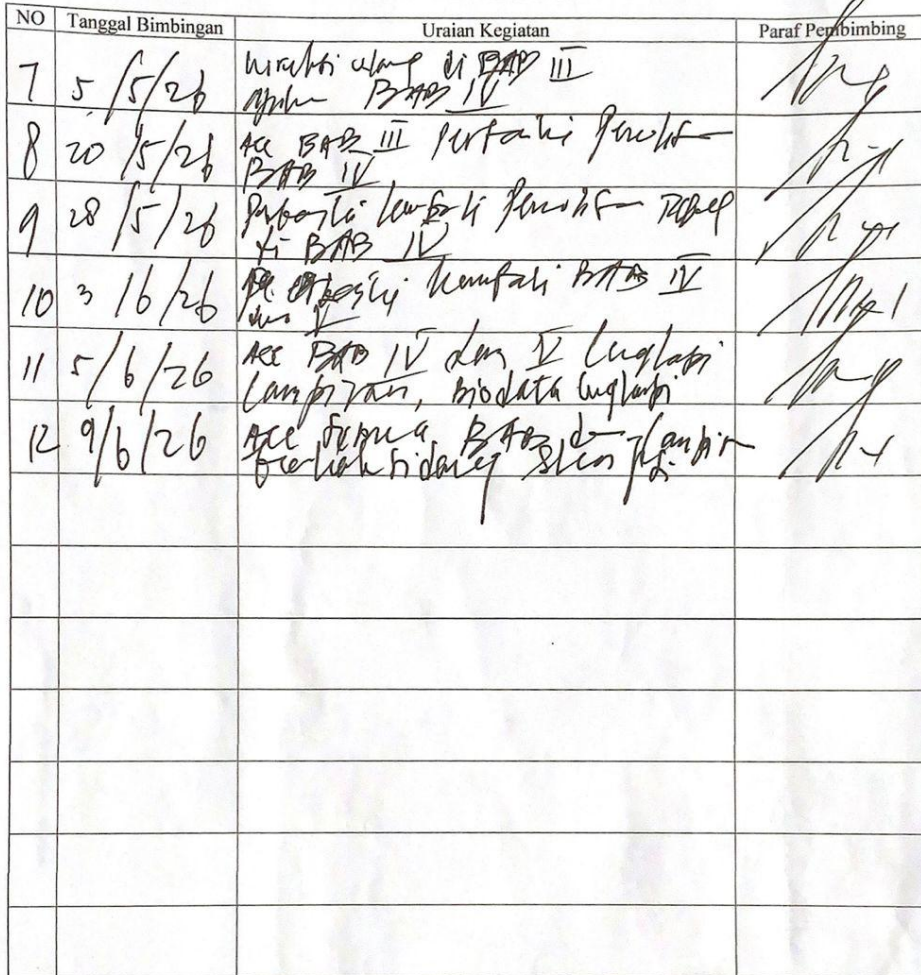 NO Tanggal Bimbingan Uraian Kegiatan Paraf Pembimbing
7 5/5/26 ulang di BAB III
BAB IV
8 20/5/26 Acc BAB III Perbaiki Penulisan
BAB IV
9 28/5/26 Perbaiki kembali Penulisan Tabel
di BAB IV
10 3/6/26 kembali BAB IV
dan V
11 5/6/26 Acc BAB IV dan V Lengkapi
Lampiran, Biodata Lengkapi
12 9/6/26 Acc semua BAB dan Lampiran
sidang